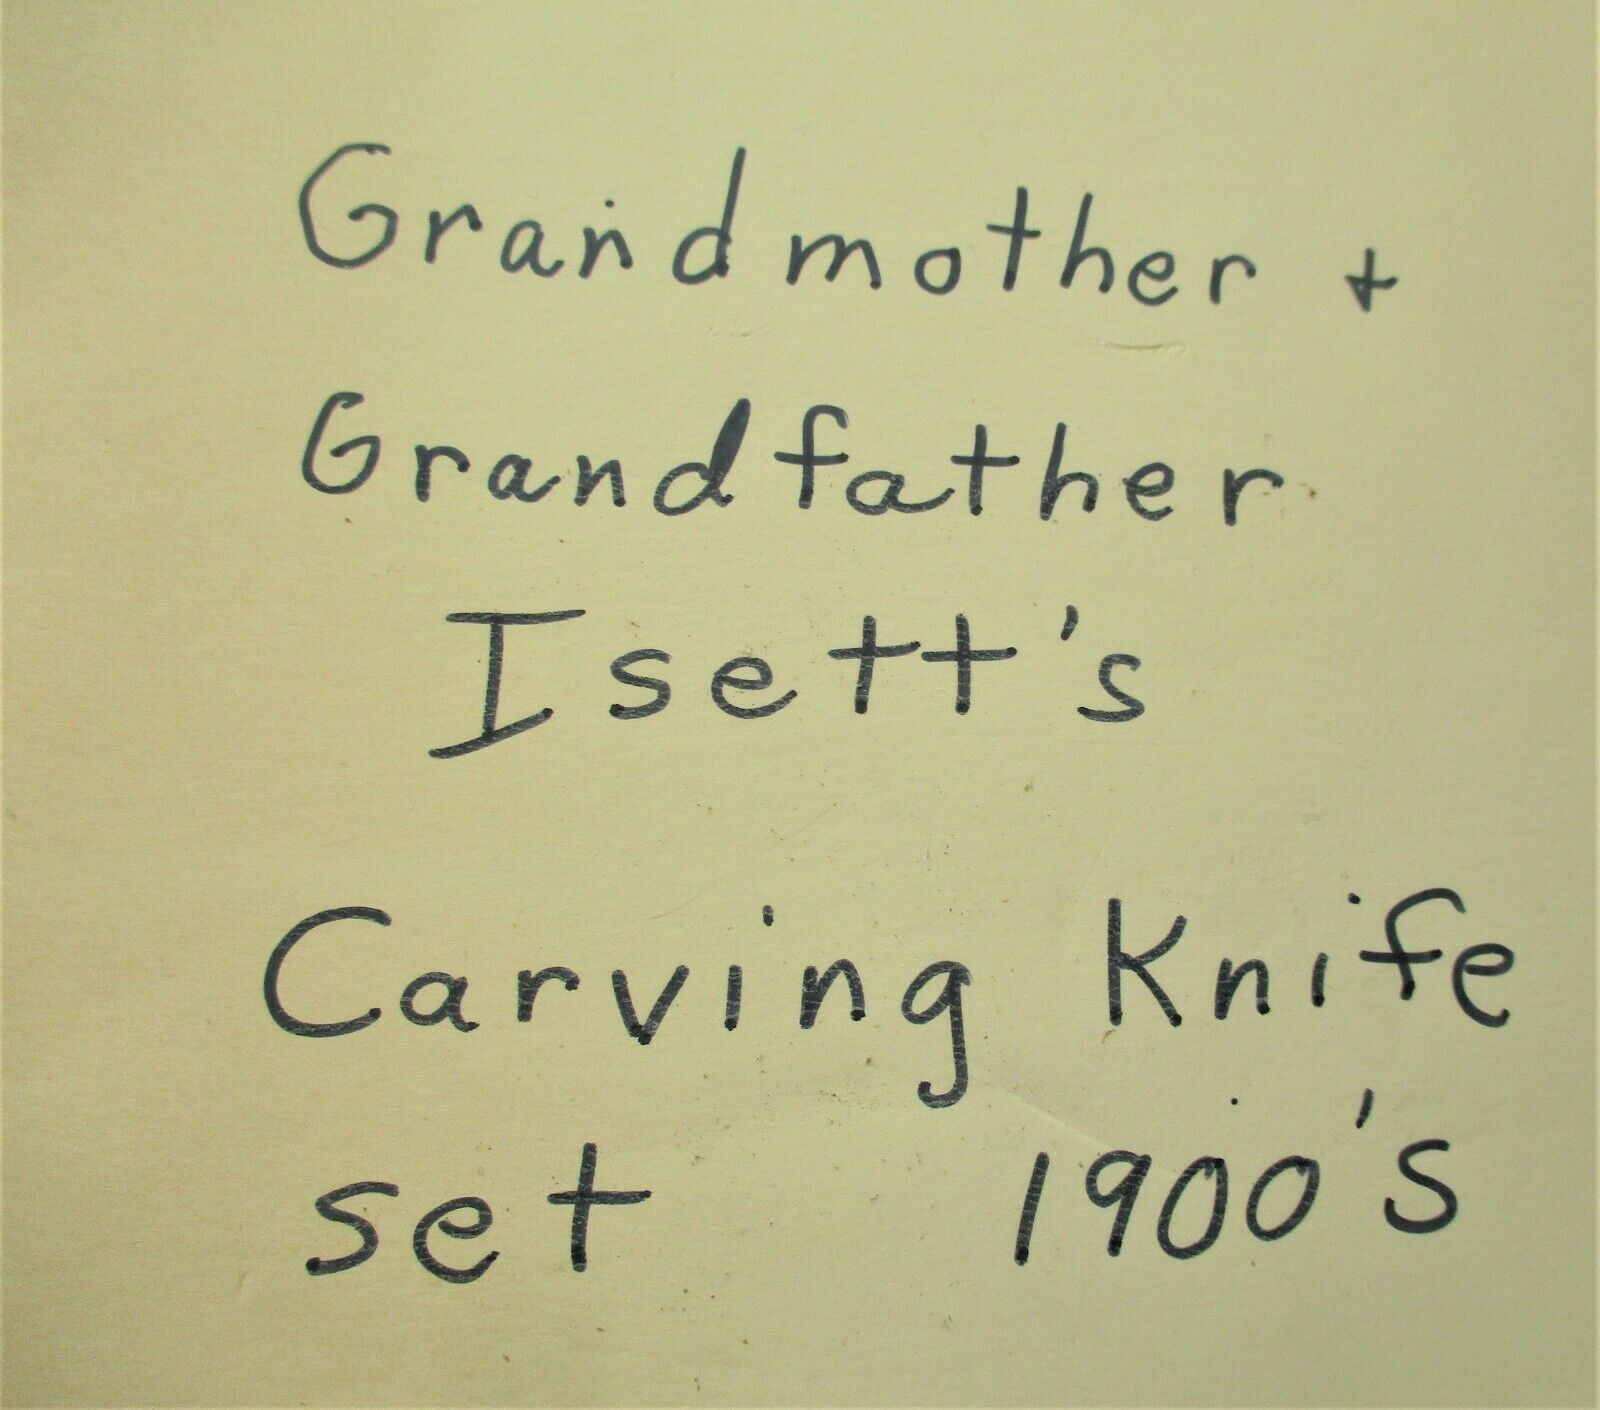 Grandmother +
Grandfather
Isett's
Carving Knife
set 1900's